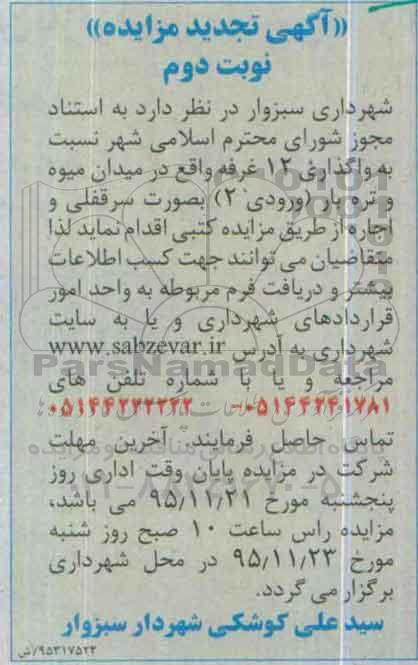 «آگهی تجدید مزایده»
نوبت دوم
شهرداری سبزوار در نظر دارد به استناد
مجوز شورای محترم اسلامی شهر نسبت
به واگذاری ۱۲ غرفه واقع در میدان میوه
و تره بار (ورودی ۲) بصورت سرقفلی و
اجاره از طریق مزایده کتبی اقدام نماید لذا
متقاضیان می توانند جهت کسب اطلاعات
بیشتر و دریافت فرم مربوطه به واحد امور
قراردادهای شهرداری و یا به سایت
شهرداری به آدرس www.sabzevar.ir
ParsNamadData
مراجعه و یا با شماره تلفن های
۰۵۱۴۴۲۴۱۷۸۱-۰۵۱۴۴۲۲۲۲۲۲
تماس حاصل فرمایند. آخرین مهلت
شرکت در مزایده پایان وقت اداری روز
پنجشنبه مورخ ۹۵/۱۱/۲۱ می باشد،
مزایده راس ساعت ۱۰ صبح روز شنبه
مورخ ۹۵/۱۱/۲۳ در محل شهرداری
برگزار می گردد.
سید علی کوشکی شهردار سبزوار
۹۵۳۱۷۵۲۳/ش